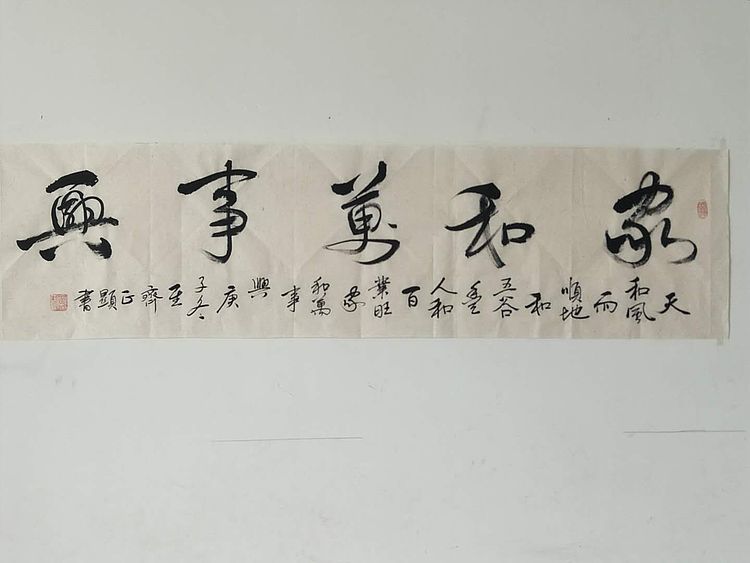 家和萬事興
天和風雨順地和五谷豐人和百業旺家和萬事興庚子冬至齊正顯書